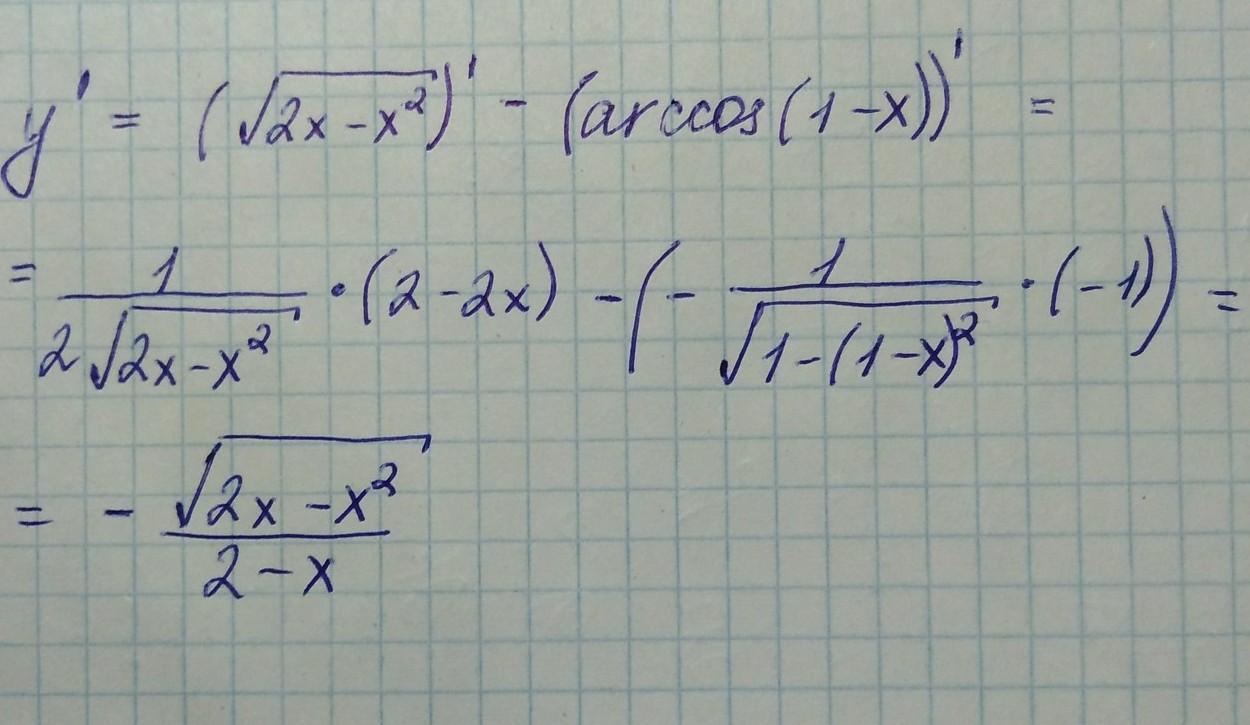 y' = (√(2x-x²))' - (arccos(1-x))' =
= 1/(2√(2x-x²)) · (2-2x) - (- 1/√(1-(1-x)²) · (-1)) =
= - √(2x-x²)/(2-x)